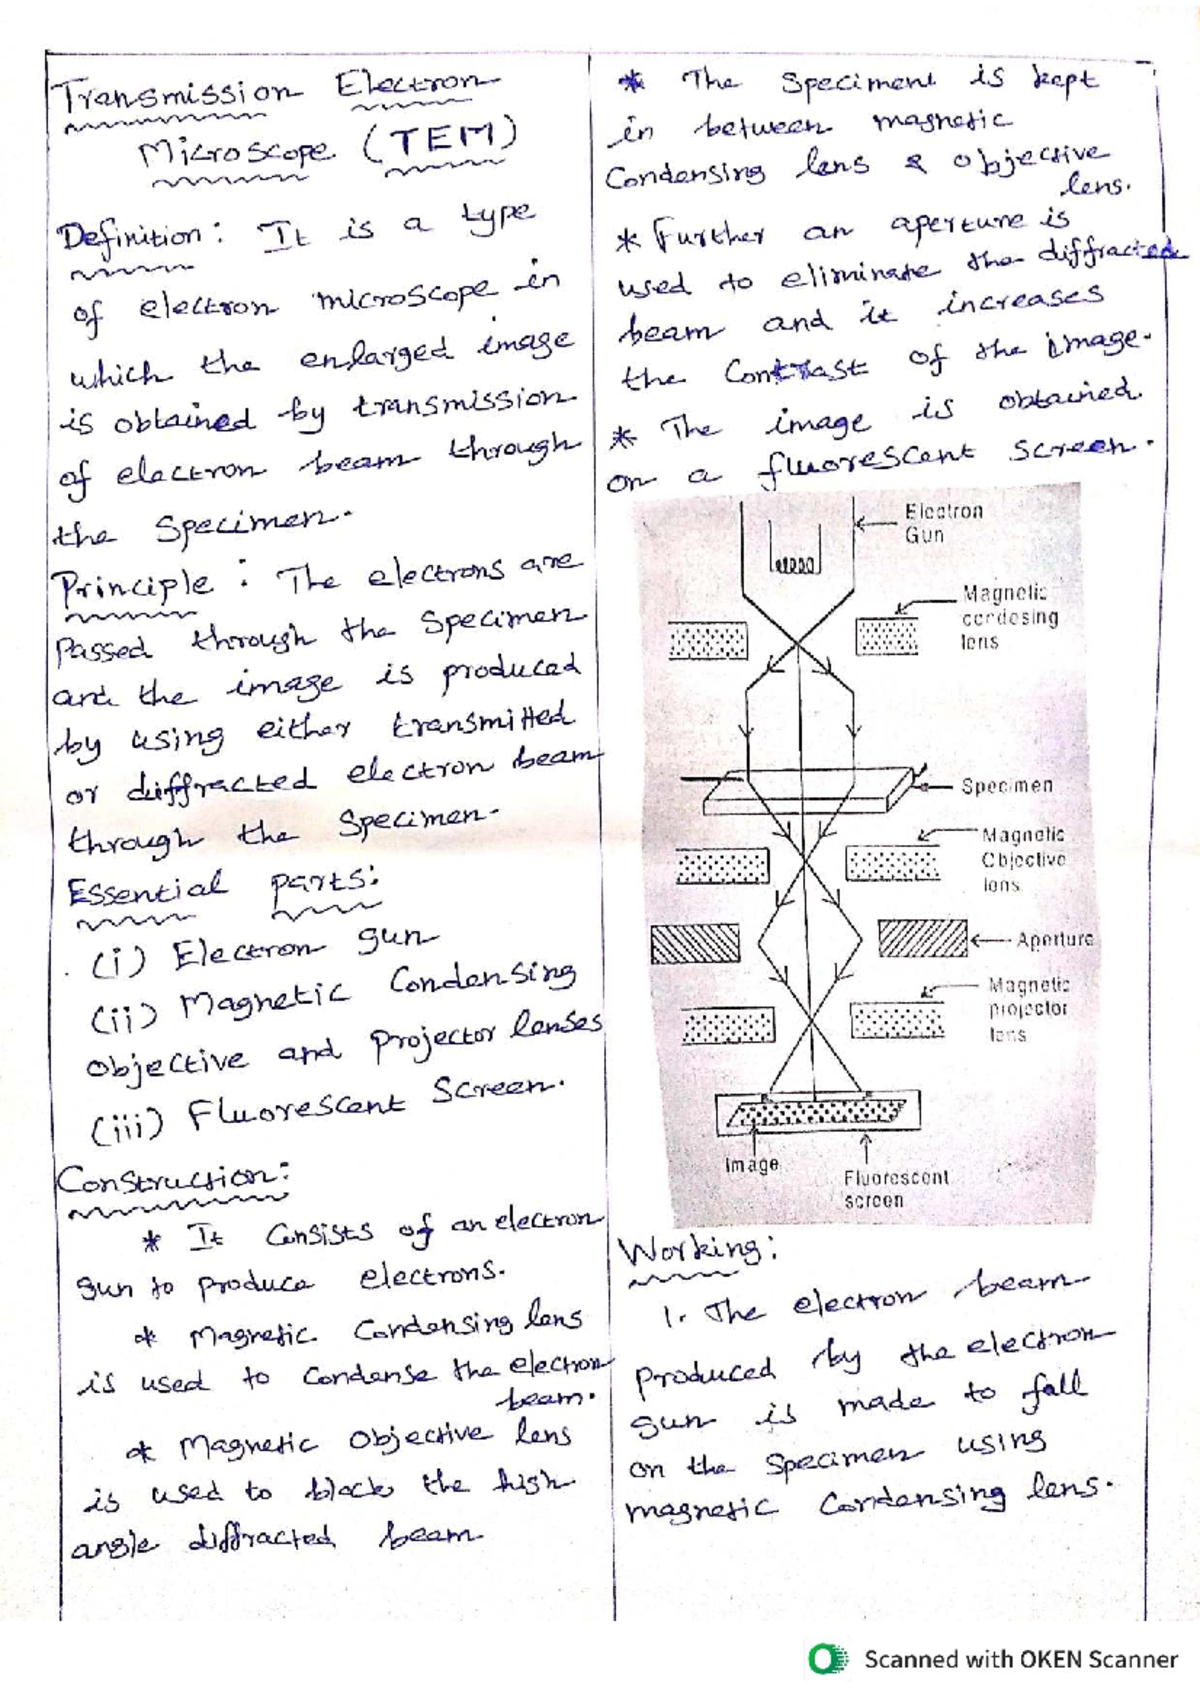 Transmission Electron
Microscope (TEM)
Definition: It is a type
of electron microscope in
which the enlarged image
is obtained by transmission
of electron beam through
the Specimen.
Principle: The electrons are
Passed through the Specimen
and the image is produced
by using either transmitted
or diffracted electron beam
through the Specimen.
Essential parts:
(i) Electron gun
(ii) Magnetic Condensing
objective and Projector lenses
(iii) Fluorescent Screen.
Construction:
* It Consists of an electron
gun to produce electrons.
* Magnetic Condensing lens
is used to Condense the electron
beam.
* Magnetic Objective lens
is used to block the high
angle diffracted beam
* The Speciment is kept
in between magnetic
Condensing lens & objective
lens.
* Further an aperture is
used to eliminate the diffracted
beam and it increases
the Contrast of the image.
* The image is obtained
on a fluorescent screen.
Electron
Gun
Magnetic
condesing
lens
Specimen
Magnetic
Objective
lens
Aperture
Magnetic
projector
lens
Image
Fluorescent
screen
Working:
1. The electron beam
Produced by the electron
gun is made to fall
on the Specimen using
magnetic Condensing lens.
Scanned with OKEN Scanner